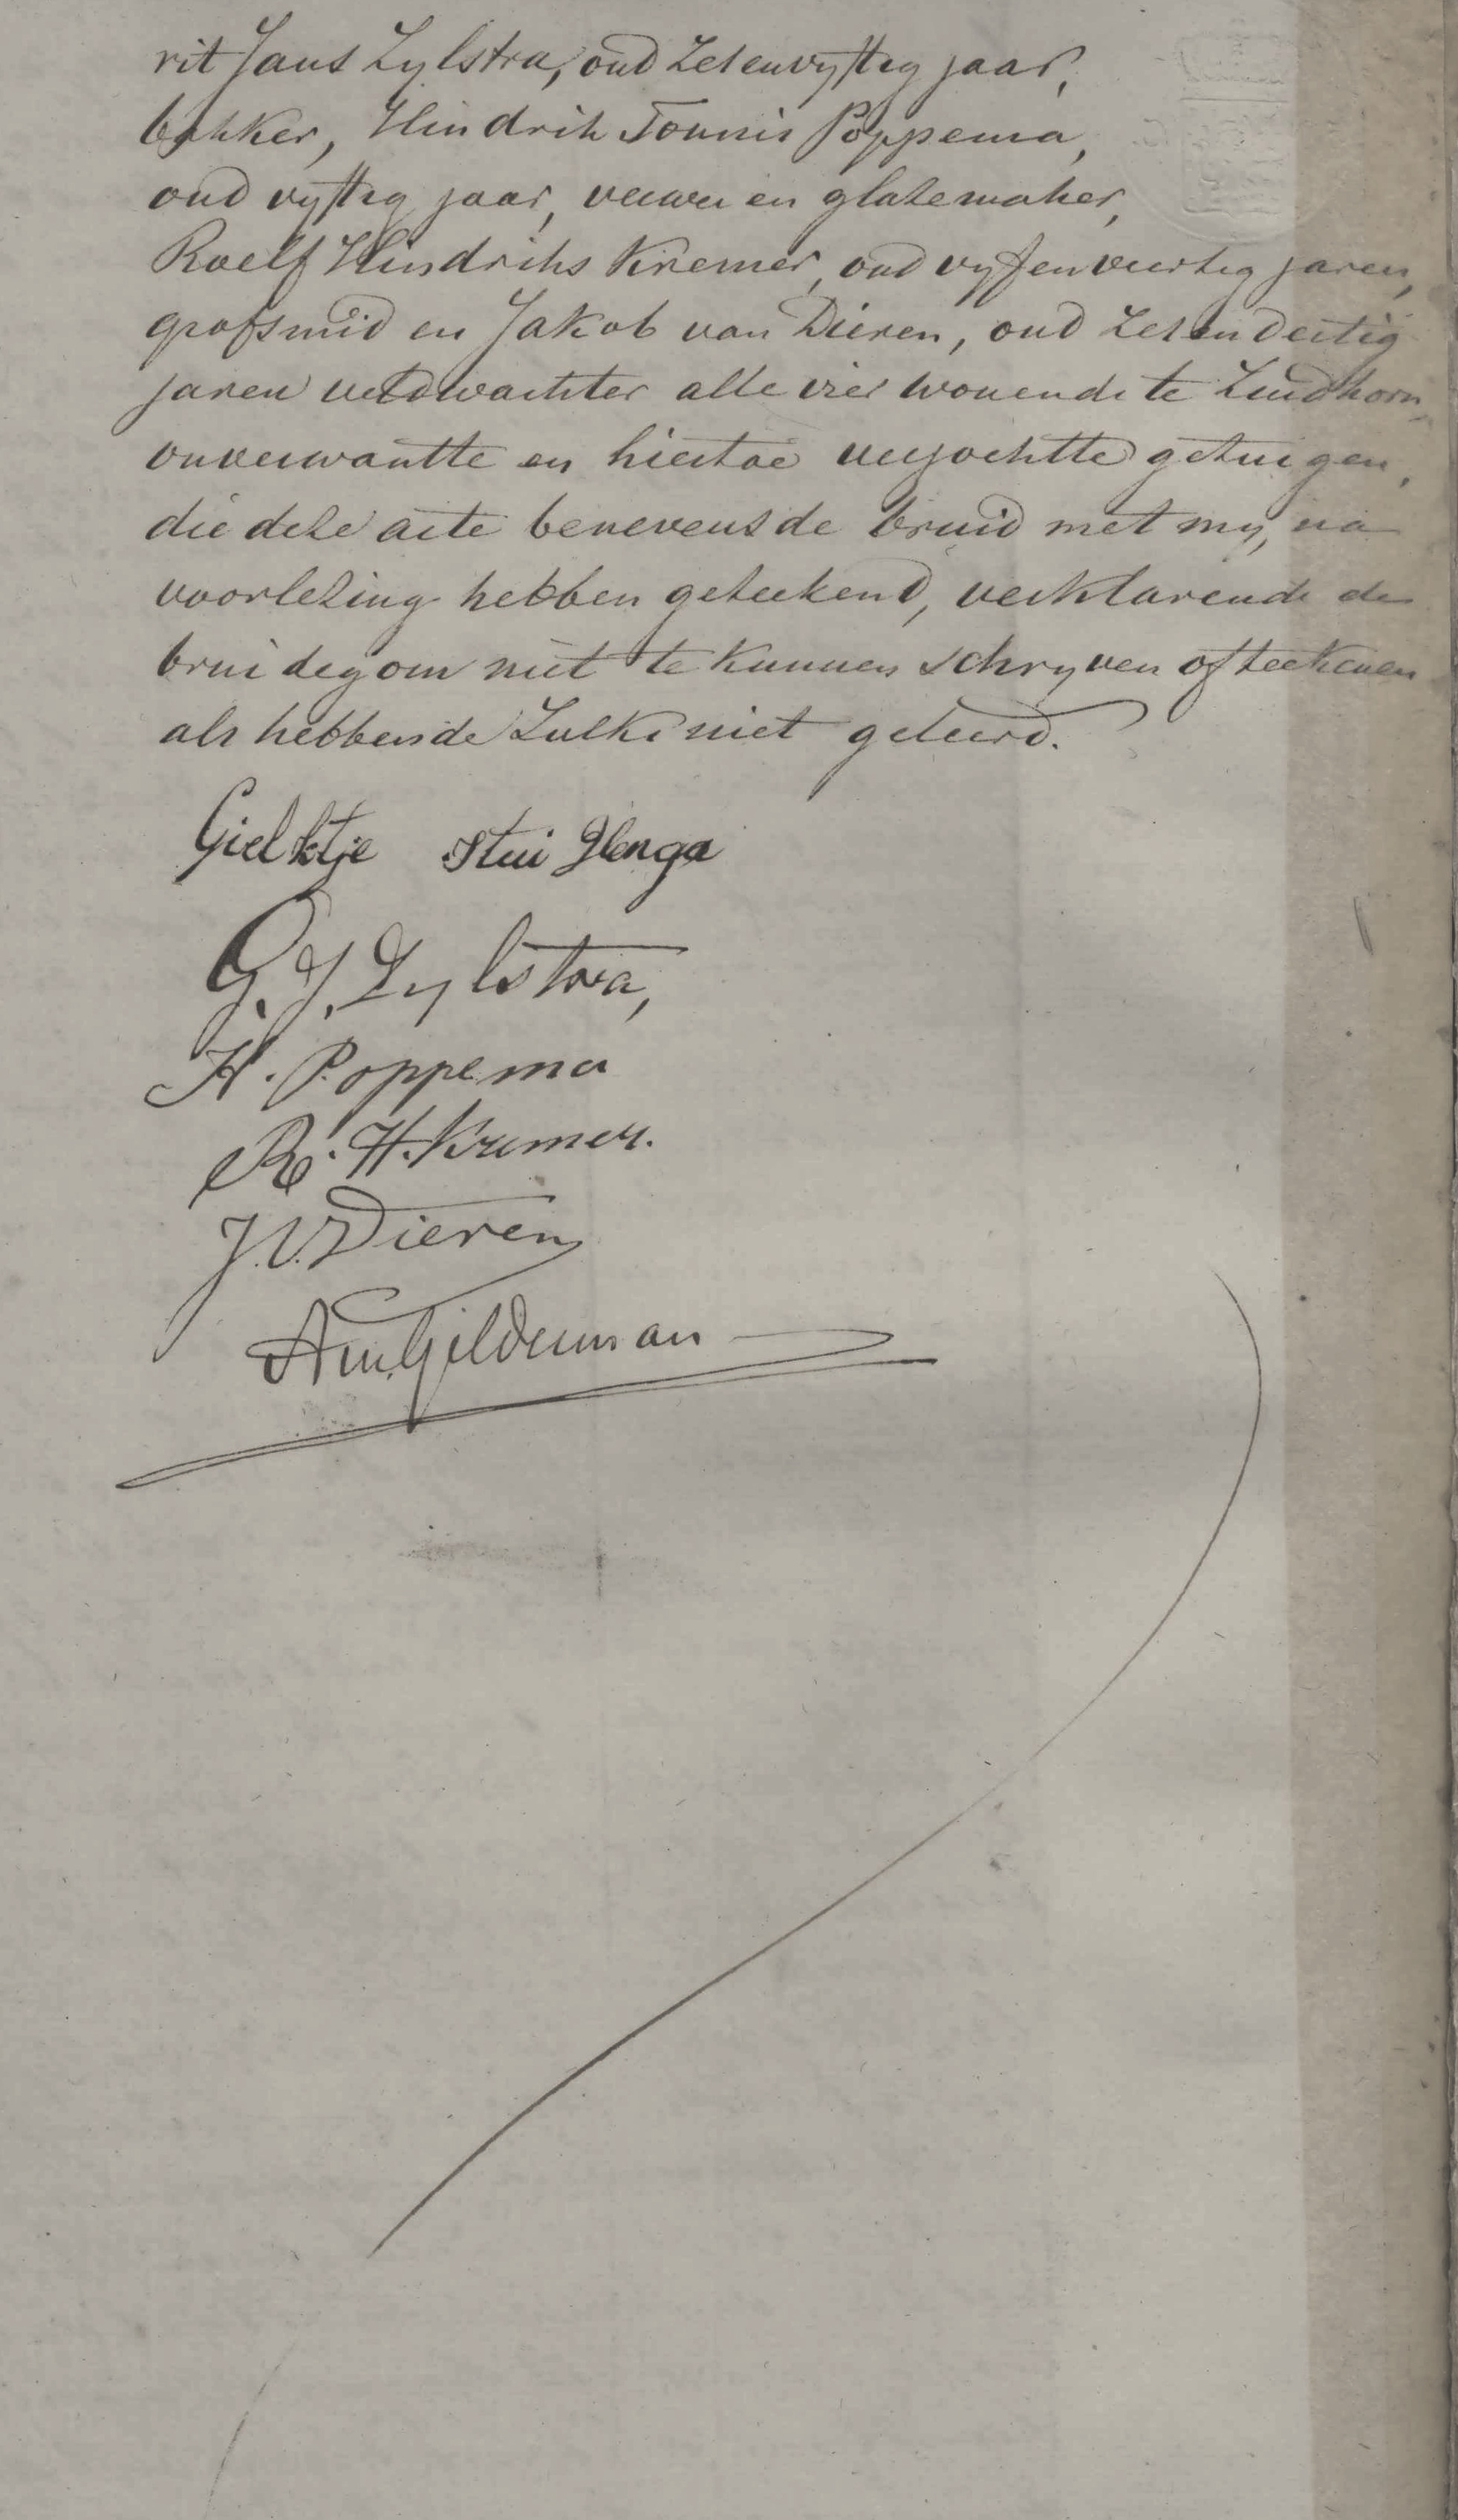 rit Jans Zylstra, oud zesenvyftig jaar,
bakker, Hindrik Tonnis Poppema,
oud vyftig jaar, verwer en glazemaker,
Roelf Hindriks Kremer, oud vyfenveertig jaren,
grofsmid en Jakob van Dieren, oud zesendertig
jaren veldwachter alle vier wonende te Zuidhorn,
onverwantte en hiertoe verzochtte getuigen,
die deze acte benevens de bruid met my, na
voorlezing hebben geteekend, verklarende de
bruidegom niet te kunnen schryven of teekenen
als hebbende zulks niet geleerd.
Gielktje Stui
G. J. Zylstra,
H. Poppema
R. H. Kremer.
J. V. Dieren
Gilderman